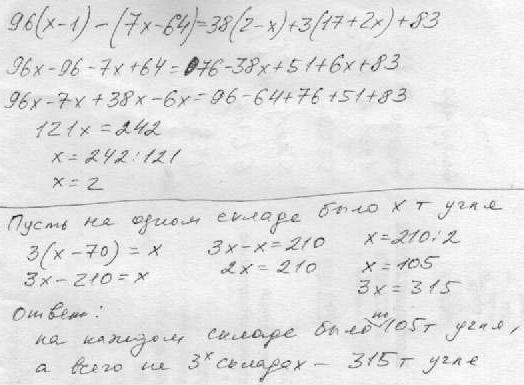 96(x-1) - (7x-64)=38(2-x)+3(17+2x)+83
96x-96-7x+64=76-38x+51+6x+83
96x-7x+38x-6x=96-64+76+51+83
121x=242
x=242:121
x=2
Пусть на одном складе было x т угля
3(x-70)=x 3x-x=210 x=210:2
3x-210=x 2x=210 x=105
3x=315
Ответ:
на каждом складе было 105т угля,
а всего на 3х складах - 315т угля